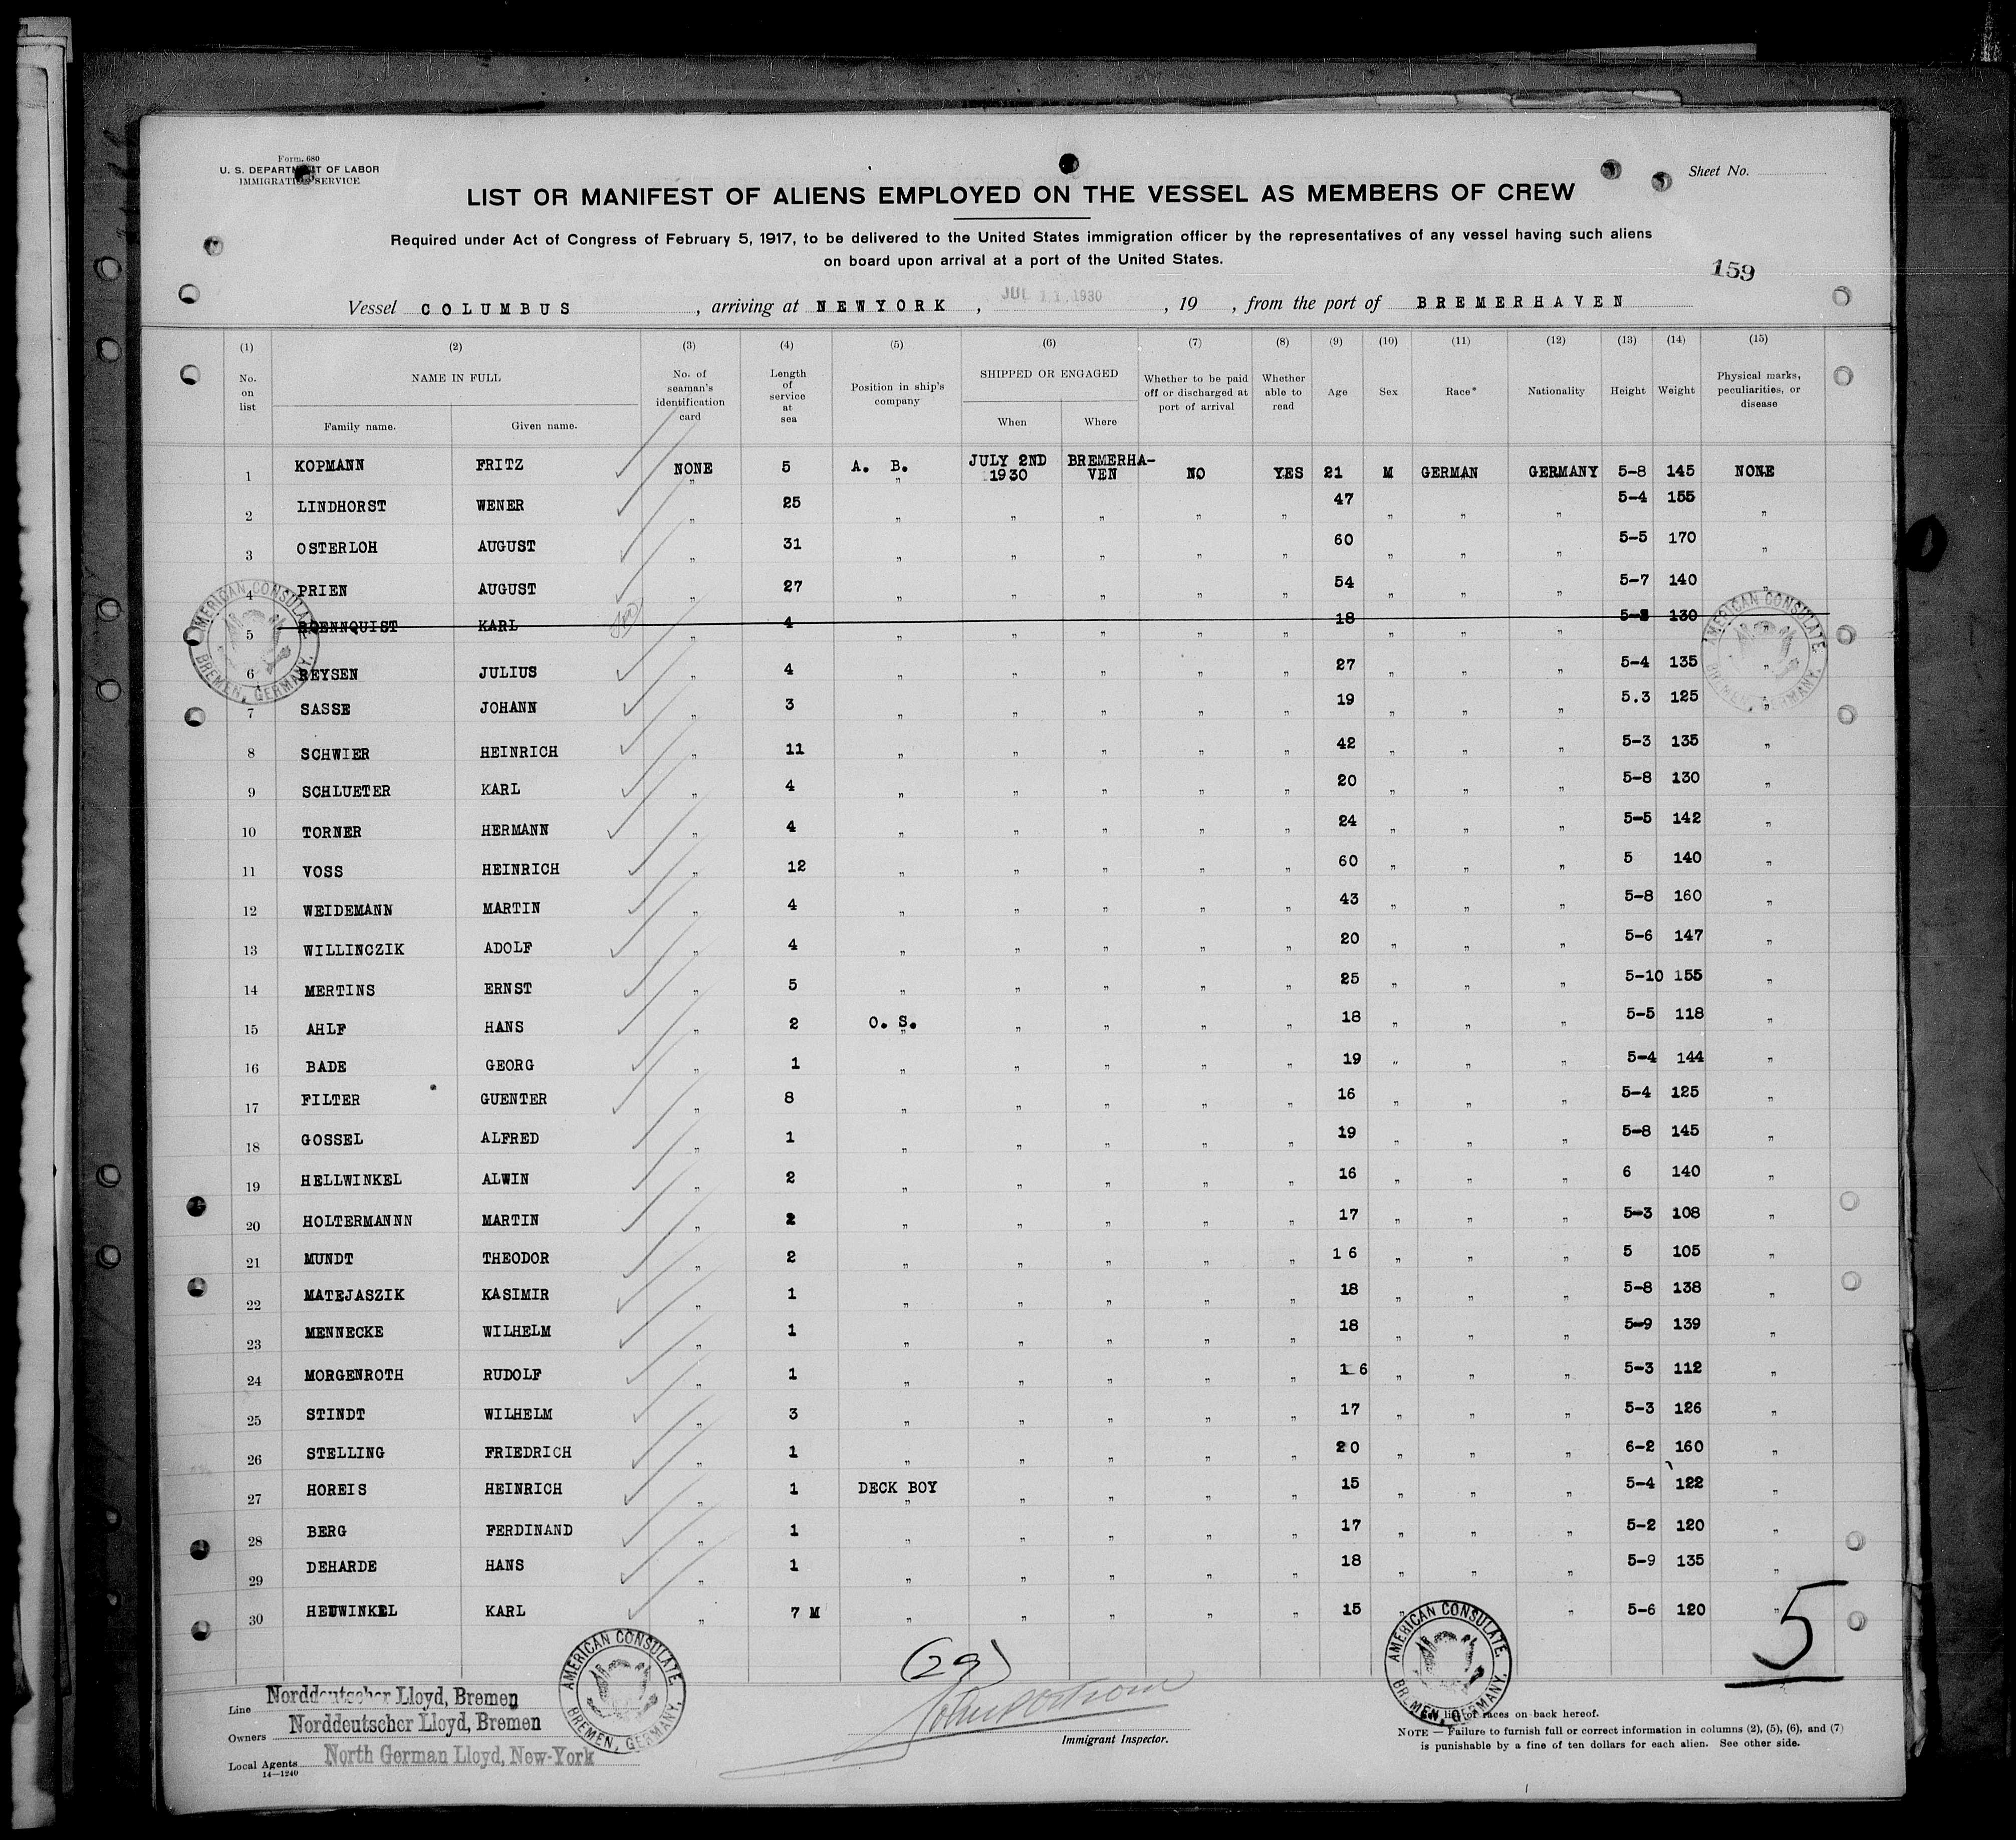 Form 680
U. S. DEPARTMENT OF LABOR
IMMIGRATION SERVICE
Sheet No.
LIST OR MANIFEST OF ALIENS EMPLOYED ON THE VESSEL AS MEMBERS OF CREW
Required under Act of Congress of February 5, 1917, to be delivered to the United States immigration officer by the representatives of any vessel having such aliens
on board upon arrival at a port of the United States.
159
Vessel COLUMBUS , arriving at NEWYORK , JUL 11 1930 , 19 , from the port of BREMERHAVEN
(1) (2) (3) (4) (5) (6) (7) (8) (9) (10) (11) (12) (13) (14) (15)
No. on list NAME IN FULL Family name. Given name. No. of seaman's identification card Length of service at sea Position in ship's company SHIPPED OR ENGAGED When Where Whether to be paid off or discharged at port of arrival Whether able to read Age Sex Race* Nationality Height Weight Physical marks, peculiarities, or disease
1 KOPMANN FRITZ NONE 5 A. B. JULY 2ND 1930 BREMERHA-VEN NO YES 21 M GERMAN GERMANY 5-8 145 NONE
2 LINDHORST WENER " 25 " " " " " 47 " " " 5-4 155 "
3 OSTERLOH AUGUST " 31 " " " " " 60 " " " 5-5 170 "
4 PRIEN AUGUST " 27 " " " " " 54 " " " 5-7 140 "
5 ROENNQUIST KARL " 4 " " " " " 18 " " " 130 "
6 REYSEN JULIUS " 4 " " " " " 27 " " " 5-4 135 "
7 SASSE JOHANN " 3 " " " " " 19 " " " 5.3 125 "
8 SCHWIER HEINRICH " 11 " " " " " 42 " " " 5-3 135 "
9 SCHLUETER KARL " 4 " " " " " 20 " " " 5-8 130 "
10 TORNER HERMANN " 4 " " " " " 24 " " " 5-5 142 "
11 VOSS HEINRICH " 12 " " " " " 60 " " " 5 140 "
12 WEIDEMANN MARTIN " 4 " " " " " 43 " " " 5-8 160 "
13 WILLINCZIK ADOLF " 4 " " " " " 20 " " " 5-6 147 "
14 MERTINS ERNST " 5 " " " " " 25 " " " 5-10 155 "
15 AHLF HANS " 2 O. S. " " " " 18 " " " 5-5 118 "
16 BADE GEORG " 1 " " " " " 19 " " " 5-4 144 "
17 FILTER GUENTER " 8 " " " " " 16 " " " 5-4 125 "
18 GOSSEL ALFRED " 1 " " " " " 19 " " " 5-8 145 "
19 HELLWINKEL ALWIN " 2 " " " " " 16 " " " 6 140 "
20 HOLTERMANNN MARTIN " 2 " " " " " 17 " " " 5-3 108 "
21 MUNDT THEODOR " 2 " " " " " 16 " " " 5 105 "
22 MATEJASZIK KASIMIR " 1 " " " " " 18 " " " 5-8 138 "
23 MENNECKE WILHELM " 1 " " " " " 18 " " " 5-9 139 "
24 MORGENROTH RUDOLF " 1 " " " " " 16 " " " 5-3 112 "
25 STINDT WILHELM " 3 " " " " " 17 " " " 5-3 126 "
26 STELLING FRIEDRICH " 1 " " " " " 20 " " " 6-2 160 "
27 HOREIS HEINRICH " 1 DECK BOY " " " " 15 " " " 5-4 122 "
28 BERG FERDINAND " 1 " " " " " 17 " " " 5-2 120 "
29 DEHARDE HANS " 1 " " " " " 18 " " " 5-9 135 "
30 HEUWINKEL KARL " 7 M " " " " " 15 " " 5-6 120 "
AMERICAN CONSULATE BREMEN, GERMANY.
AMERICAN CONSULATE BREMEN, GERMANY.
AMERICAN CONSULATE, BREMEN, GERMANY.
AMERICAN CONSULATE, BREMEN, GERMANY.
(29)
5
Line Norddeutscher Lloyd, Bremen
Owners Norddeutscher Lloyd, Bremen
Local Agents North German Lloyd, New-York
14—1240
Immigrant Inspector.
list of races on back hereof.
NOTE — Failure to furnish full or correct information in columns (2), (5), (6), and (7)
is punishable by a fine of ten dollars for each alien. See other side.